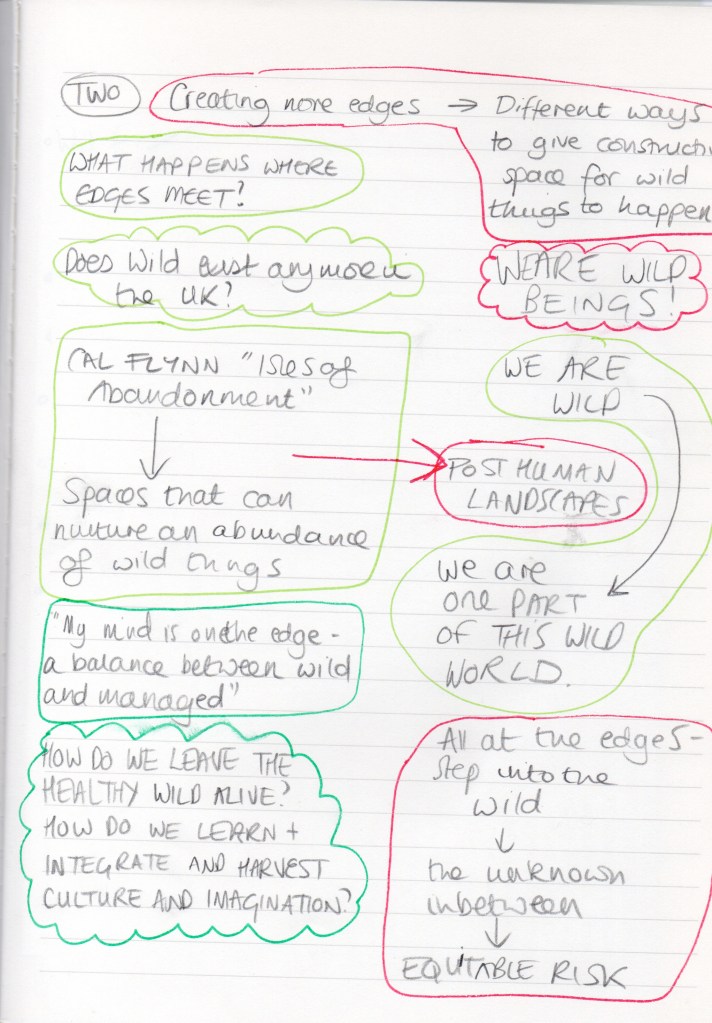 TWO
Creating more edges → Different ways
to give constructi
space for wild
things to happen
WHAT HAPPENS WHERE
EDGES MEET?
Does Wild exist anymore in
the UK?
WE ARE WILD
BEINGS!
CAL FLYNN "Isles of
Abandonment"
↓
Spaces that can
nurture an abundance
of wild things
WE ARE
WILD
POST HUMAN
LANDSCAPES
We are
one PART
of THIS WILD
WORLD.
"My mind is on the edge -
a balance between wild
and managed"
HOW DO WE LEAVE THE
HEALTHY WILD ALIVE?
HOW DO WE LEARN +
INTEGRATE AND HARVEST
CULTURE AND IMAGINATION?
All at the edges -
Step into the
wild
↓
the unknown
inbetween
↓
EQUITABLE RISK